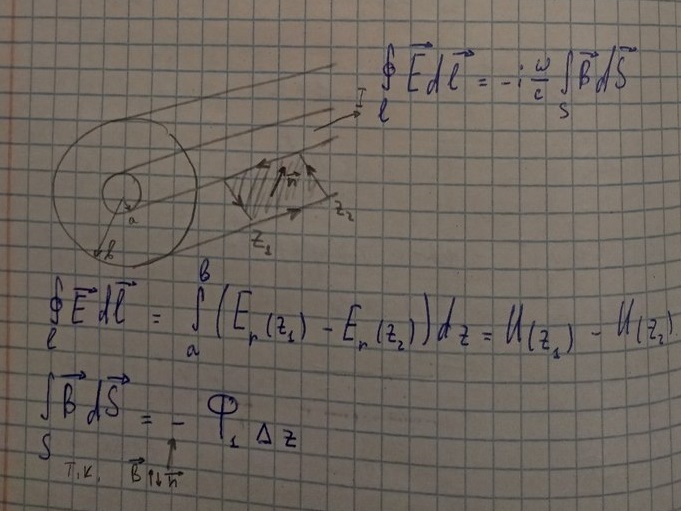 ∮_l E⃗ dl⃗ = -i ω/c ∫_S B⃗ dS⃗
I
n⃗
a
b
z₁
z₂
∮_l E⃗ dl⃗ = ∫_a^b (E_r(z₁) - E_r(z₂)) dz = U(z₁) - U(z₂)
∫_S B⃗ dS⃗ = - Φ₁ Δz
т.к. B⃗ ↑↓ n⃗